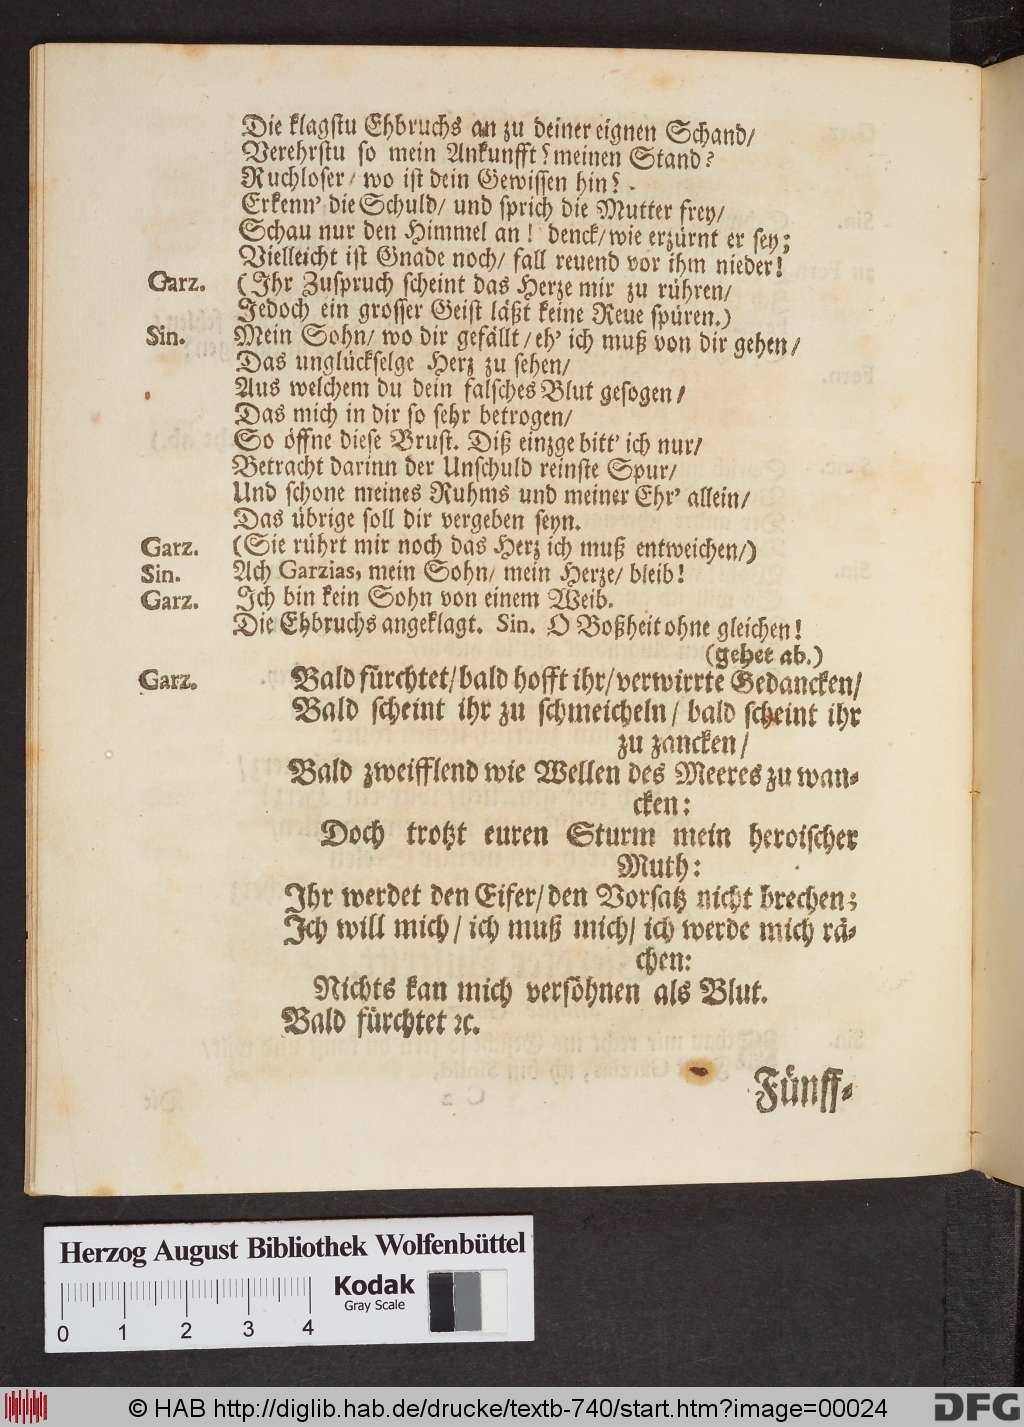 Die klagstu Ehbruchs an zu deiner eignen Schand/
Verehrstu so mein Ankunfft? meinen Stand?
Ruchloser/ wo ist dein Gewissen hin?
Erkenn' die Schuld/ und sprich die Mutter frey/
Schau nur den Himmel an! denck/ wie erzürnt er sey;
Vielleicht ist Gnade noch/ fall reuend vor ihm nieder!
Garz. (Ihr Zuspruch scheint das Herze mir zu rühren/
Jedoch ein grosser Geist läßt keine Reue spüren.)
Sin. Mein Sohn/ wo dir gefällt/ eh' ich muß von dir gehen/
Das unglückselge Herz zu sehen/
Aus welchem du dein falsches Blut gesogen/
Das mich in dir so sehr betrogen/
So öffne diese Brust. Diß einzge bitt' ich nur/
Betracht darinn der Unschuld reinste Spur/
Und schone meines Ruhms und meiner Ehr' allein/
Das übrige soll dir vergeben seyn.
Garz. (Sie rührt mir noch das Herz ich muß entweichen/)
Sin. Ach Garzias, mein Sohn/ mein Herze/ bleib!
Garz. Ich bin kein Sohn von einem Weib.
Die Ehbruchs angeklagt. Sin. O Boßheit ohne gleichen!
(gehet ab.)
Garz. Bald fürchtet/ bald hofft ihr/ verwirrte Gedancken/
Bald scheint ihr zu schmeicheln/ bald scheint ihr
zu zancken/
Bald zweifflend wie Wellen des Meeres zu wan-
cken:
Doch trotzt euren Sturm mein heroischer
Muth:
Ihr werdet den Eifer/ den Vorsatz nicht brechen;
Ich will mich/ ich muß mich/ ich werde mich rä-
chen:
Nichts kan mich versöhnen als Blut.
Bald fürchtet ꝛc.
Fünff-
Herzog August Bibliothek Wolfenbüttel
Kodak
Gray Scale
0 1 2 3 4
© HAB http://diglib.hab.de/drucke/textb-740/start.htm?image=00024
DFG